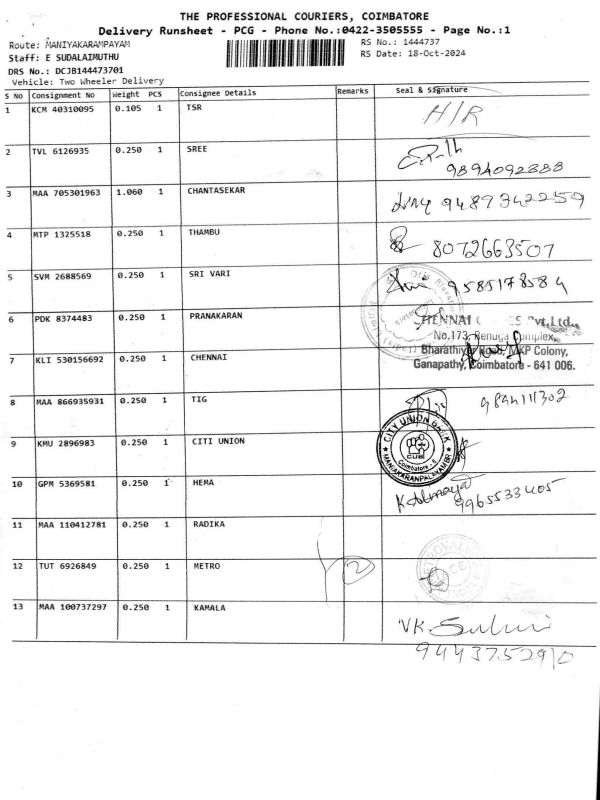 THE PROFESSIONAL COURIERS, COIMBATORE
Delivery Runsheet - PCG - Phone No.:0422-3505555 - Page No.:1
Route: MANIYAKARAMPAYAM
RS No.: 1444737
Staff: E SUDALAIMUTHU
RS Date: 18-Oct-2024
DRS No.: DCJB144473701
Vehicle: Two Wheeler Delivery
S No Consignment No Weight PCS Consignee Details Remarks Seal & Signature
1 KCM 40310095 0.105 1 TSR H/R
2 TVL 6126935 0.250 1 SREE
9894092888
3 MAA 705301963 1.060 1 CHANTASEKAR 9489342259
4 MTP 1325518 0.250 1 THAMBU 8072663507
5 SVM 2688569 0.250 1 SRI VARI 9585178584
6 PDK 8374483 0.250 1 PRANAKARAN
CHENNAI Pvt.Ltd.,
No.173, Renuga Complex,
7 KLI 530156692 0.250 1 CHENNAI
Bharathiyar Road, MKP Colony,
Ganapathy, Coimbatore - 641 006.
8 MAA 866935931 0.250 1 TIG 9894111302
9 KMU 2896983 0.250 1 CITI UNION
CITY UNION BANK
CUB
Coimbatore
10 GPM 5369581 0.250 1 HEMA
9965533405
11 MAA 110412781 0.250 1 RADIKA
12 TUT 6926849 0.250 1 METRO 2
13 MAA 100737297 0.250 1 KAMALA
VK.
9443752910